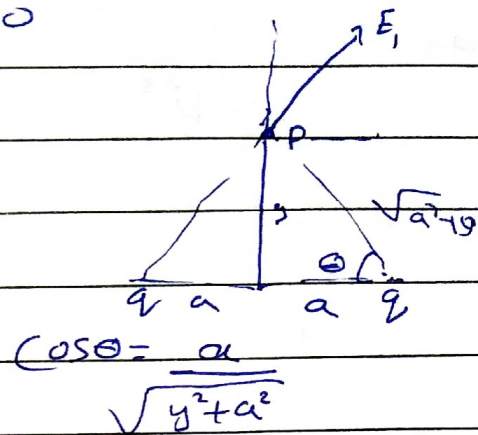 E₁
P
y
√a²+y
θ
q a a q
Cosθ = a / √y²+a²